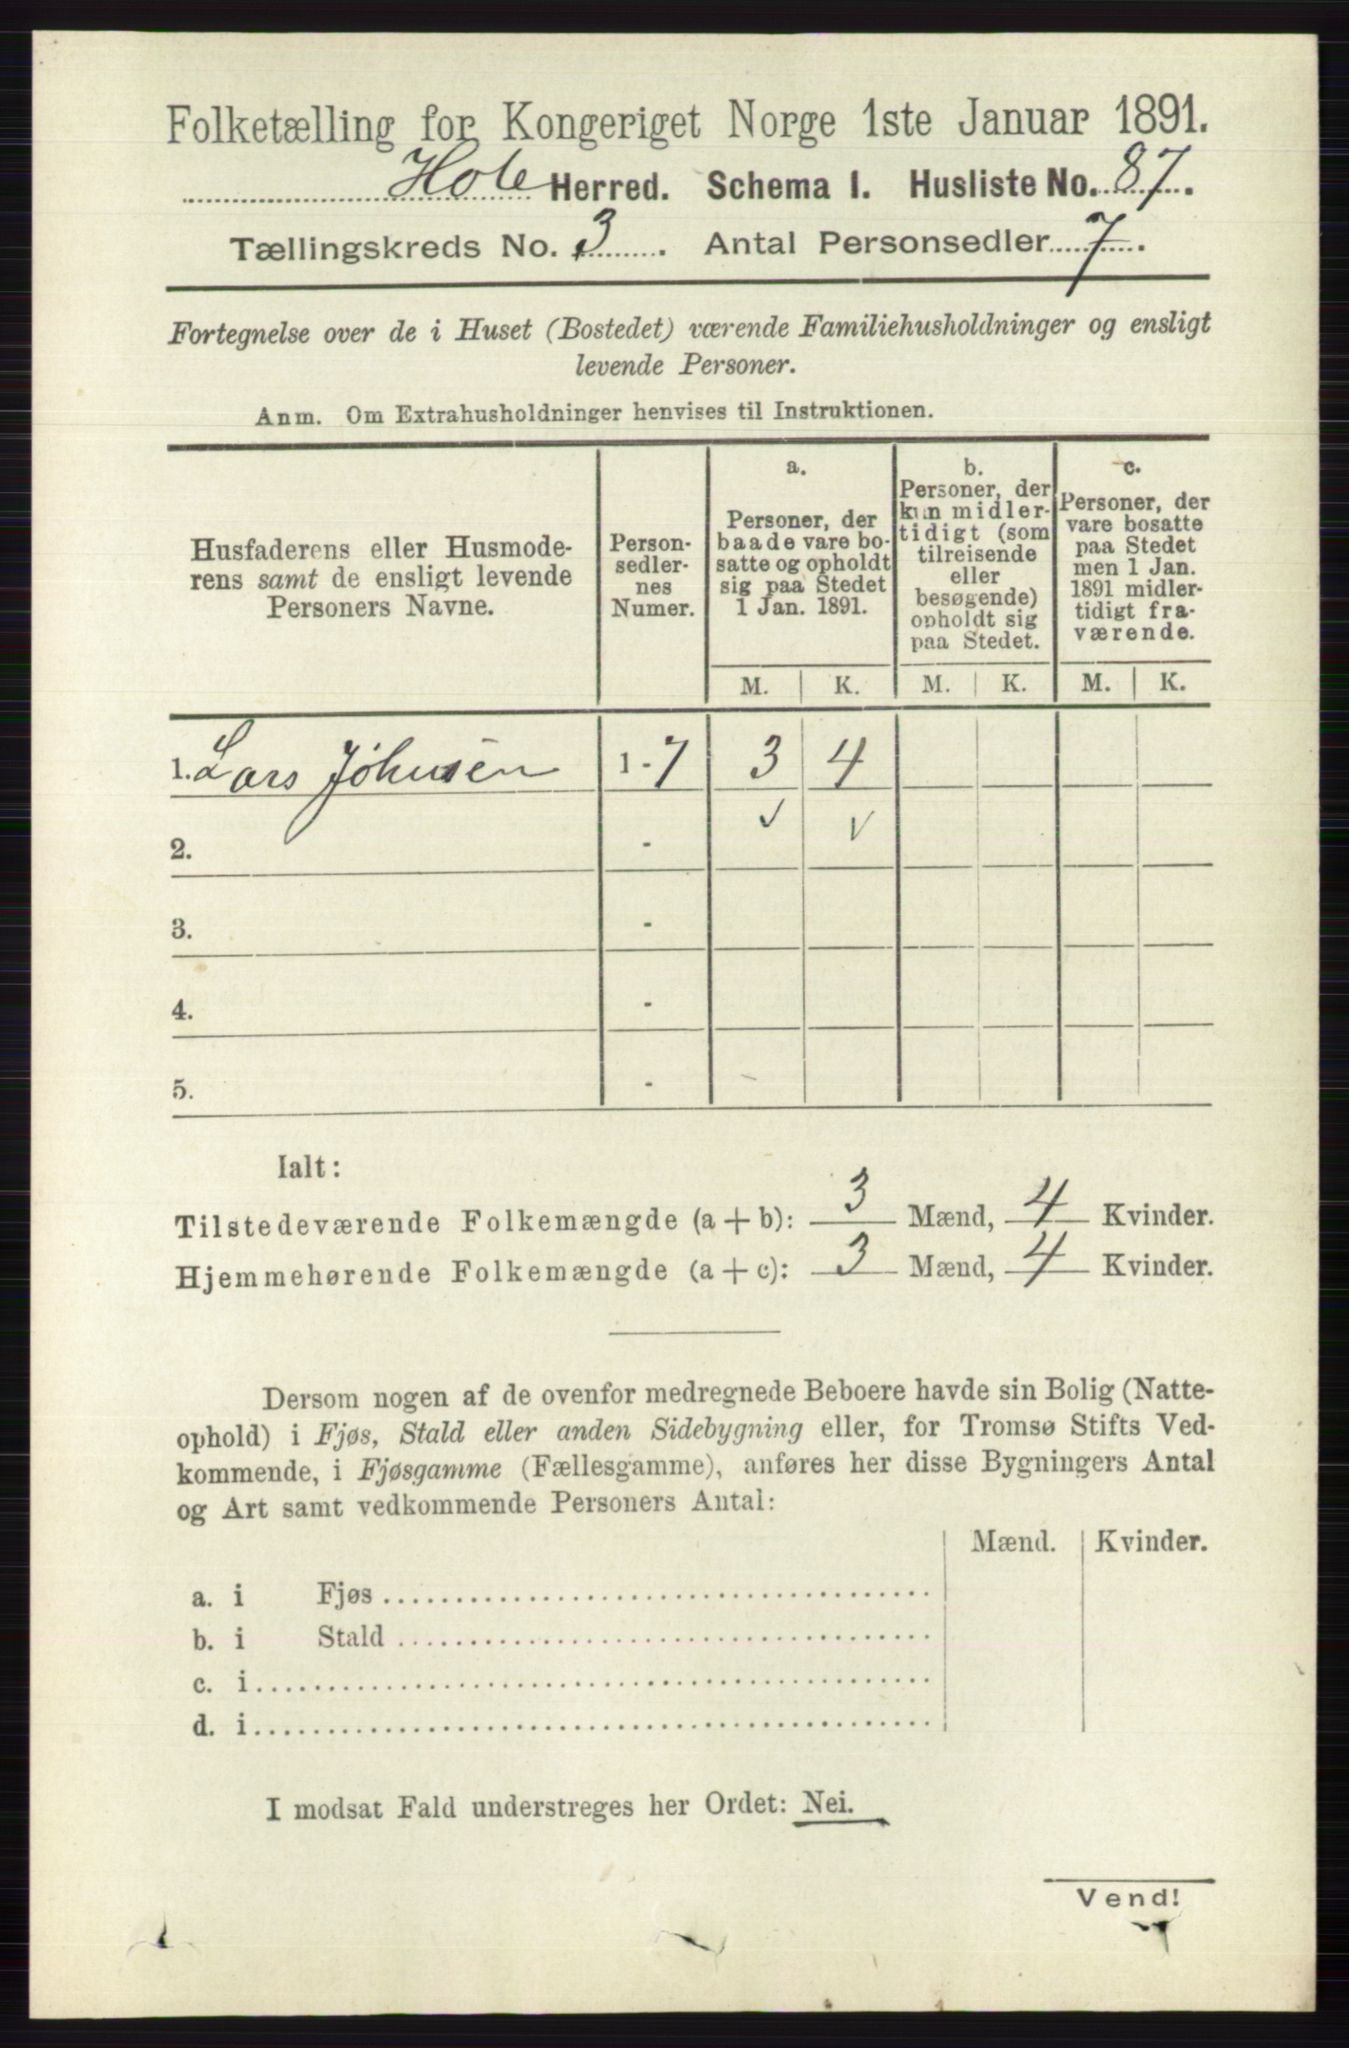 Folketælling for Kongeriget Norge 1ste Januar 1891.
Hole Herred. Schema I. Husliste No. 87.
Tællingskreds No. 3. Antal Personsedler 7.
Fortegnelse over de i Huset (Bostedet) værende Familiehusholdninger og ensligt
levende Personer.
Anm. Om Extrahusholdninger henvises til Instruktionen.
Husfaderens eller Husmode-
rens samt de ensligt levende
Personers Navne.
Person-
sedler-
nes
Numer.
a.
Personer, der
baade vare bo-
satte og opholdt
sig paa Stedet
1 Jan. 1891.
b.
Personer, der
kun midler-
tidigt (som
tilreisende
eller
besøgende)
opholdt sig
paa Stedet.
c.
Personer, der
vare bosatte
paa Stedet
men 1 Jan.
1891 midler-
tidigt fra-
værende.
M. K. M. K. M. K.
1. Lars Johnsen 1 - 7 3 4
✓ ✓
2. -
3. -
4. -
5. -
Ialt:
Tilstedeværende Folkemængde (a + b): 3 Mænd, 4 Kvinder.
Hjemmehørende Folkemængde (a + c): 3 Mænd, 4 Kvinder.
Dersom nogen af de ovenfor medregnede Beboere havde sin Bolig (Natte-
ophold) i Fjøs, Stald eller anden Sidebygning eller, for Tromsø Stifts Ved-
kommende, i Fjøsgamme (Fællesgamme), anføres her disse Bygningers Antal
og Art samt vedkommende Personers Antal:
Mænd. Kvinder.
a. i Fjøs
b. i Stald
c. i
d. i
I modsat Fald understreges her Ordet: Nei.
Vend!